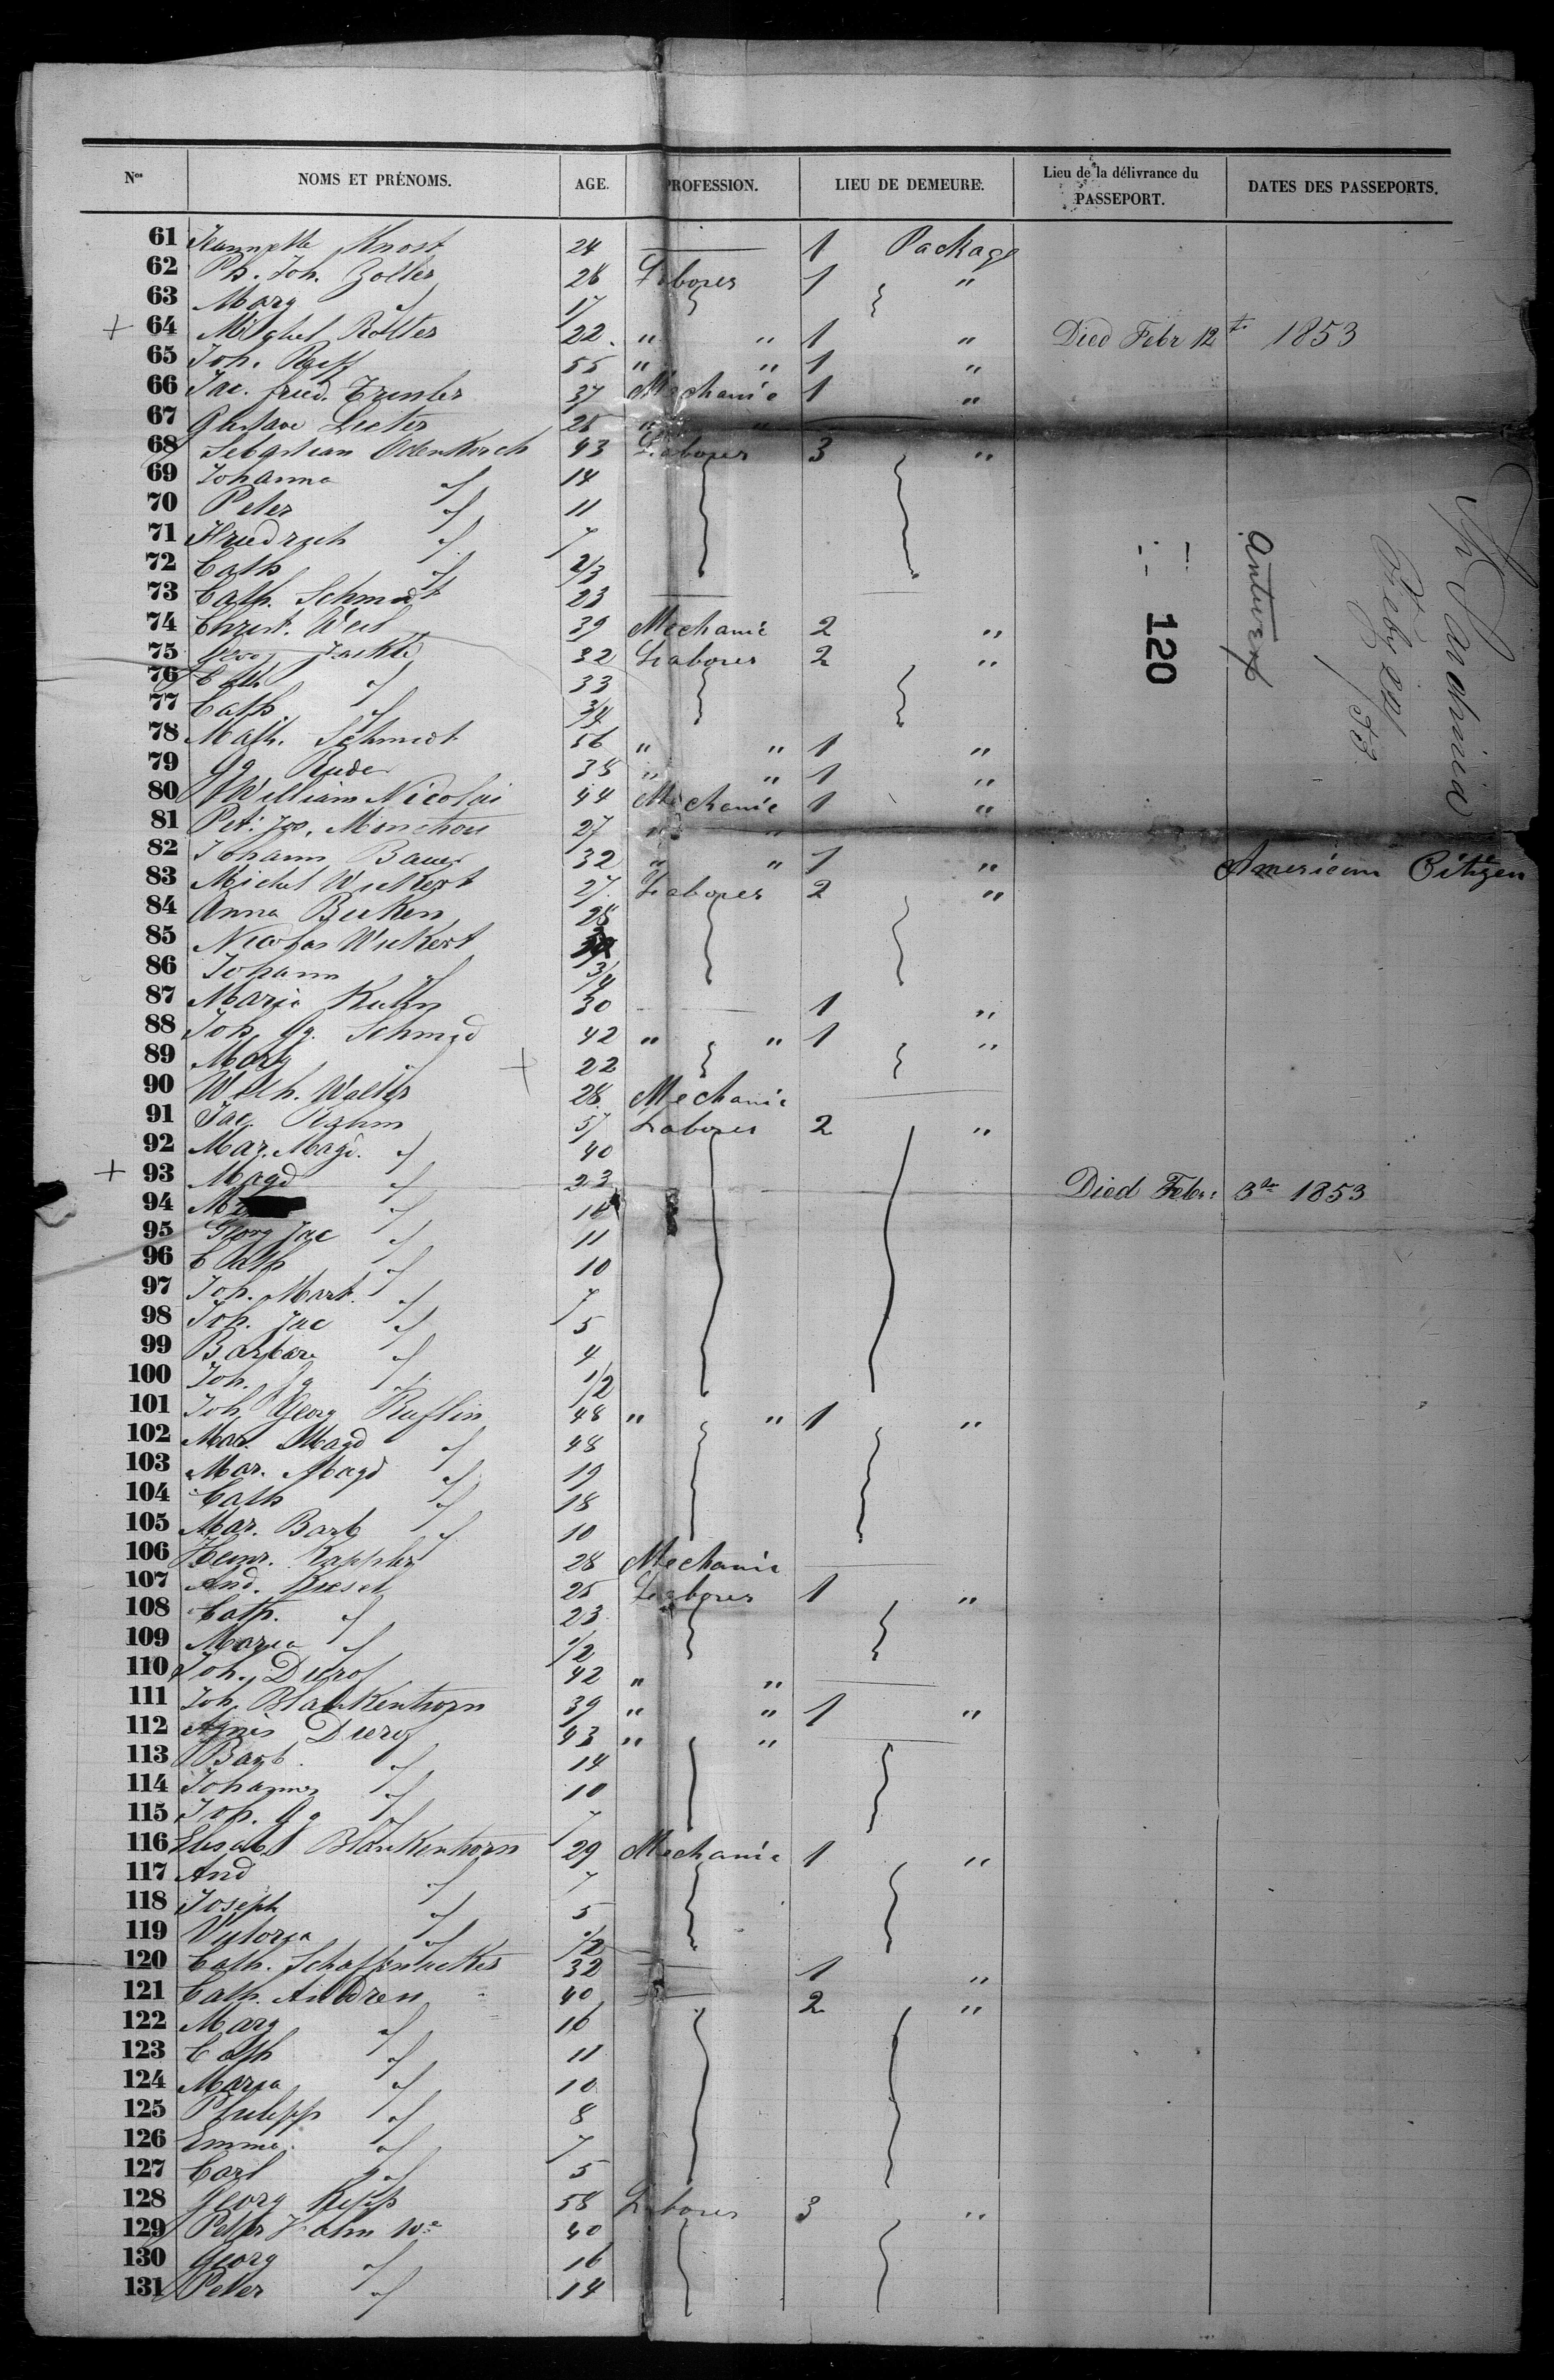 Nos NOMS ET PRÉNOMS. AGE. PROFESSION. LIEU DE DEMEURE. Lieu de la délivrance du PASSEPORT. DATES DES PASSEPORTS.
61 Jeannette Knost 24 1 Package
62 Ph. Joh. Zoller 28 Laborer 1 "
63 Marg " 17
+ 64 Michel Rollter 22 " " 1 " Died Febr 12th 1853
65 Joh. 55 " " 1 "
66 Jac. fried. 37 Mechanic 1 "
67 Gustave 25 " "
68 Sebastian Odenkirch 43 Laborer 3 "
69 Johanna " 14
70 Peter " 11
71 Friedrich " 7
72 Cath " 2/3
73 Cath. Schmidt 23
74 Christ. Weis 39 Mechanic 2 "
75 Georg 32 Laborer 2 "
76 Cath " 33
77 Cath " 3/4
78 Math. Schmidt 56 " " 1 "
79 Gg 38 " " 1 "
80 William Nicolai 44 Mechanic 1 "
81 Pet. Jos. 27 " "
82 Johann Bauer 32 " " 1 " American Citizen
83 Michel Wickert 27 Laborer 2 "
84 Anna 28
85 Nicolas Wickert
86 Johann " 3/4
87 Maria Kuhn 30 1 "
88 Joh. Gg. Schmid 42 " " 1 "
89 Marg " 22
90 Wilh. Walter 28 Mechanic
91 Jac. 57 Laborer 2 "
92 Mar. Magd. " 40
+ 93 Magd " 23 Died Febr: 3d 1853
94 "
95 Georg Jac " 11
96 Cath " 10
97 Joh. Mart. " 7
98 Joh. Jac " 5
99 Barbara " 4
100 Joh. Gg " 1/2
101 Joh Georg Ruflin 48 " " 1 "
102 Mar. Magd " 48
103 Mar. Magd " 19
104 Cath " 18
105 Mar. Barb " 10
106 Heinr. Kappler 28 Mechanic
107 And. 25 Laborer 1 "
108 Cath. " 23
109 Maria " 1/2
110 Joh. 42 " "
111 Joh. Blankenhorn 39 " " 1 "
112 Agnes 43 " "
113 Barb. " 14
114 Johannes " 10
115 Joh. Gg " 7
116 Elisabet Blankenhorn 29 Mechanic 1 "
117 And " 7
118 Joseph " 5
119 Victoria " 1/2
120 Cath. 32 1 "
121 Cath. Andren 40 2 "
122 Marg " 16
123 Cath " 11
124 Maria " 10
125 Philipp " 8
126 Emma " 7
127 Carl " 5
128 Georg 58 Laborer 3 "
129 Peter 40
130 Georg " 16
131 Peter " 14
Sh Sardinia
Antwerp
120